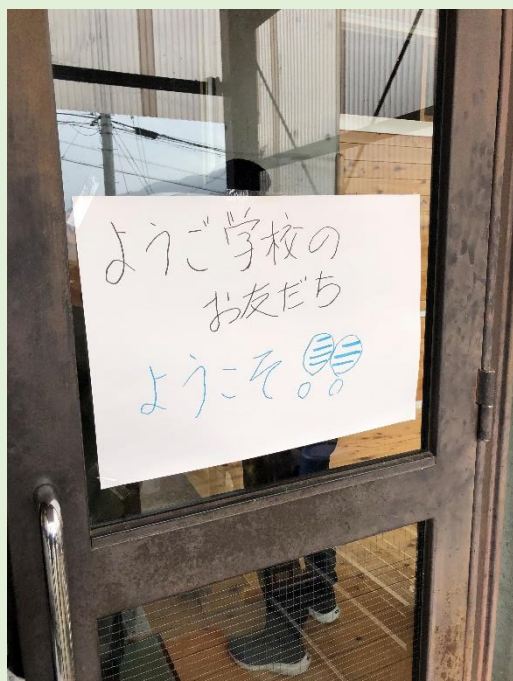 ようご学校の
お友だち
ようこそ!!